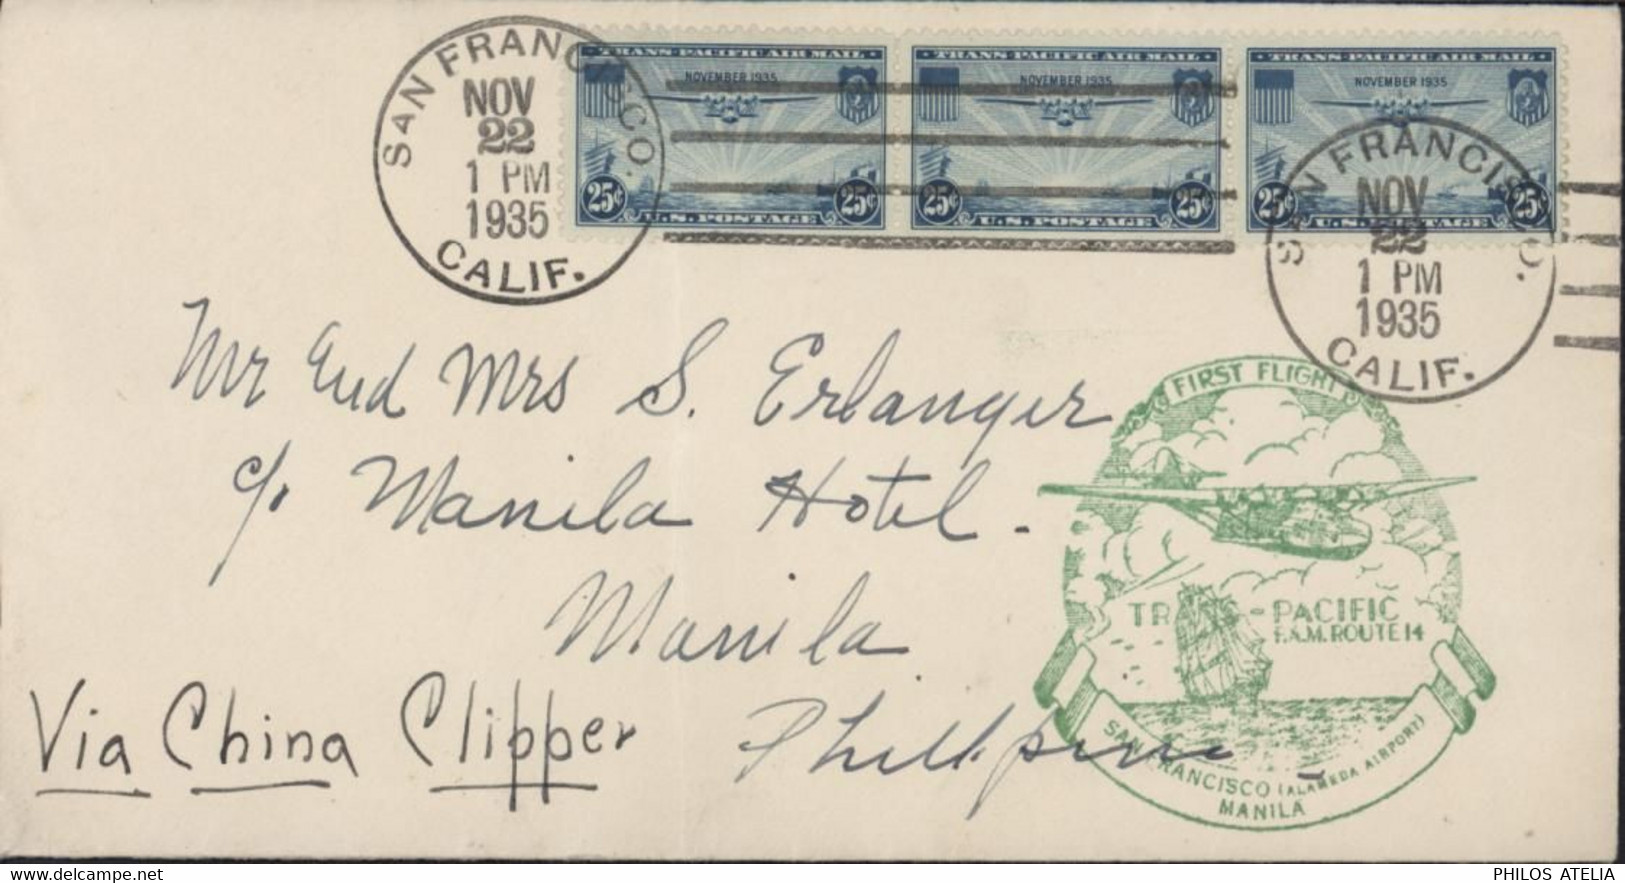 SAN FRANCISCO.
NOV
22
1 PM
1935
CALIF.
TRANS-PACIFIC AIR MAIL
NOVEMBER 1935
25¢ U.S. POSTAGE 25¢
TRANS-PACIFIC AIR MAIL
NOVEMBER 1935
25¢ U.S. POSTAGE 25¢
TRANS-PACIFIC AIR MAIL
NOVEMBER 1935
25¢ U.S. POSTAGE 25¢
SAN FRANCISCO.
NOV
22
1 PM
1935
CALIF.
Mr And Mrs S. Erlanger
c/o Manila Hotel.
Manila
Phillipine
Via China Clipper
FIRST FLIGHT
TRANS-PACIFIC
F.A.M. ROUTE 14
SAN FRANCISCO (ALAMEDA AIRPORT)
MANILA
www.delcampe.net
PHILOS ATELIA